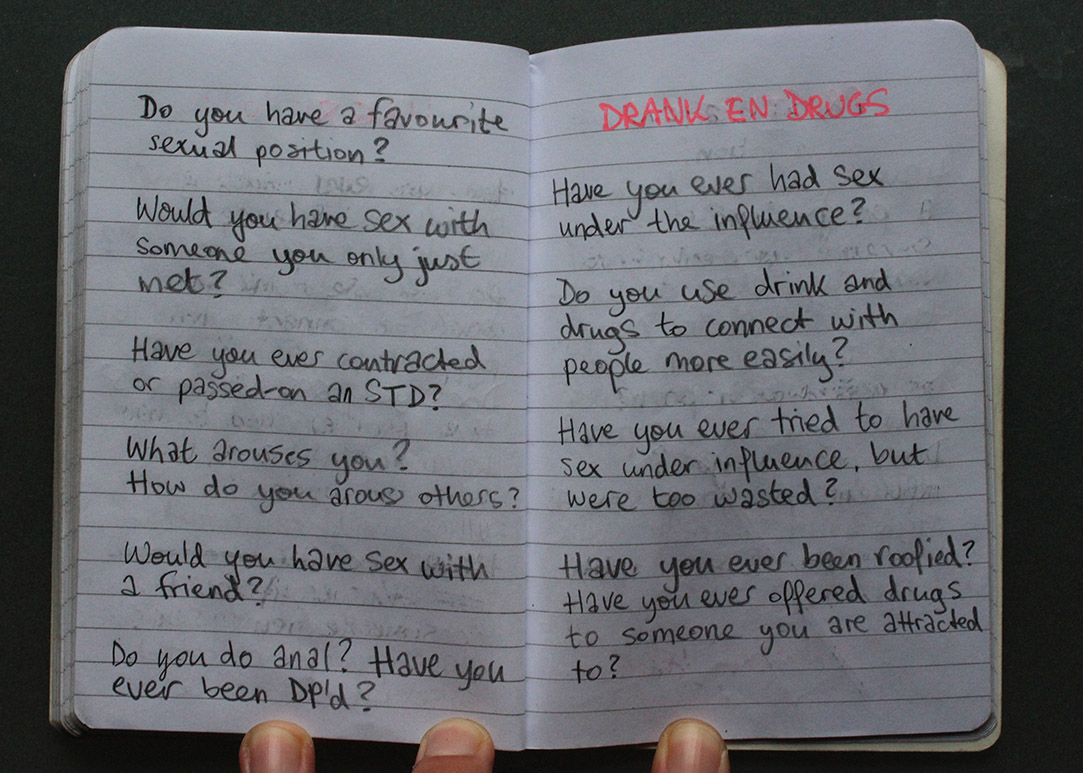 Do you have a favourite
sexual position?
Would you have sex with
someone you only just
met?
Have you ever contracted
or passed-on an STD?
What arouses you?
How do you arous others?
Would you have sex with
a friend?
Do you do anal? Have you
ever been DP'd?
DRANK EN DRUGS
Have you ever had sex
under the influence?
Do you use drink and
drugs to connect with
people more easily?
Have you ever tried to have
sex under influence, but
were too wasted?
Have you ever been roofied?
Have you ever offered drugs
to someone you are attracted
to?